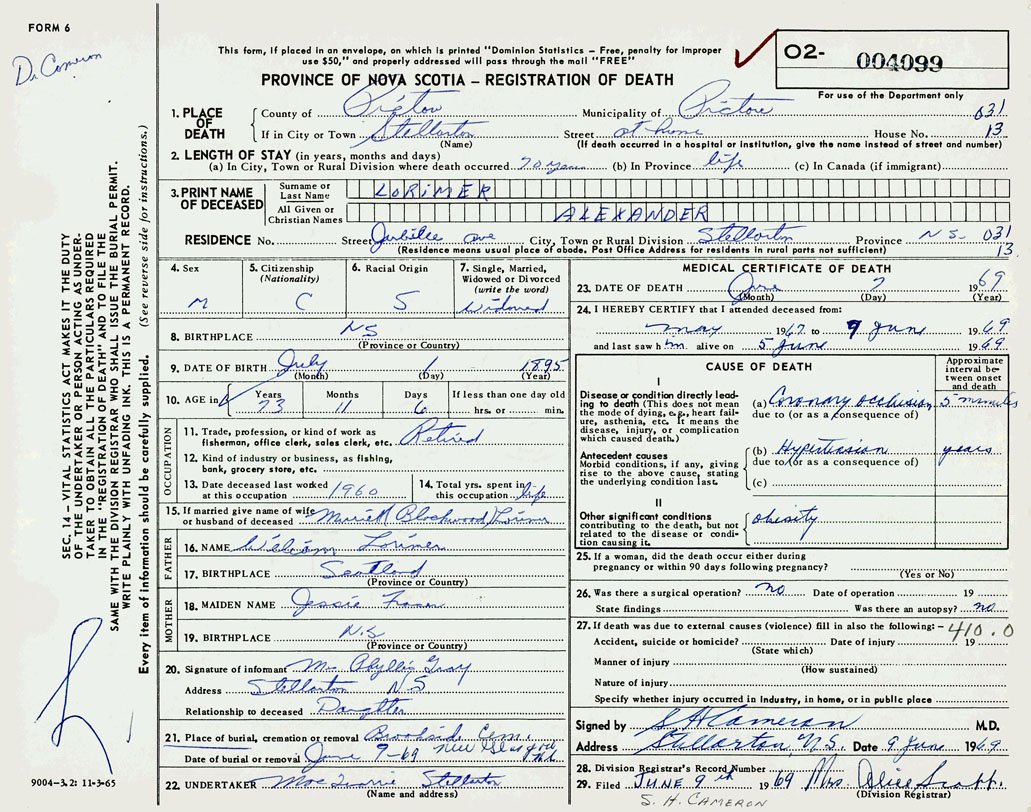 FORM 6
Dr Cameron
This form, if placed in an envelope, on which is printed "Dominion Statistics – Free, penalty for improper
use $50," and properly addressed will pass through the mail "FREE"
PROVINCE OF NOVA SCOTIA – REGISTRATION OF DEATH
O2- 004099
For use of the Department only
1. PLACE OF DEATH
County of Pictou Municipality of Pictou 031
If in City or Town Stellarton Street at home House No. 13
(Name) (If death occurred in a hospital or institution, give the name instead of street and number)
2. LENGTH OF STAY (in years, months and days)
(a) In City, Town or Rural Division where death occurred 70 years (b) In Province life (c) In Canada (if immigrant)
3. PRINT NAME OF DECEASED
Surname or Last Name LORIMER
All Given or Christian Names ALEXANDER
RESIDENCE No. Street Jubilee ave City, Town or Rural Division Stellarton Province N S. 031
(Residence means usual place of abode. Post Office Address for residents in rural parts not sufficient) 13
4. Sex M
5. Citizenship (Nationality) C
6. Racial Origin S
7. Single, Married, Widowed or Divorced (write the word) Widowed
8. BIRTHPLACE NS
(Province or Country)
9. DATE OF BIRTH July 1 1895
(Month) (Day) (Year)
10. AGE in Years 73 Months 11 Days 6 If less than one day old
hrs. or min.
OCCUPATION
11. Trade, profession, or kind of work as
fisherman, office clerk, sales clerk, etc. Retired
12. Kind of industry or business, as fishing,
bank, grocery store, etc.
13. Date deceased last worked
at this occupation 1960
14. Total yrs. spent in
this occupation life
15. If married give name of wife
or husband of deceased Blackwood Lorimer
FATHER
16. NAME William Lorimer
17. BIRTHPLACE Scotland
(Province or Country)
MOTHER
18. MAIDEN NAME Jessie Fraser
19. BIRTHPLACE N.S
(Province or Country)
20. Signature of informant Mrs Phyllis Gray
Address Stellarton N S
Relationship to deceased Daughter
21. Place of burial, cremation or removal Brookside Cem.
Date of burial or removal June 9-69 New Glasgow
22. UNDERTAKER Stellarton
(Name and address)
MEDICAL CERTIFICATE OF DEATH
23. DATE OF DEATH June 7 1969
(Month) (Day) (Year)
24. I HEREBY CERTIFY that I attended deceased from:
may 1967 to 7 June 1969
and last saw him alive on 5 June 1969
CAUSE OF DEATH
Approximate interval between onset and death
I
Disease or condition directly leading to death (This does not
mean the mode of dying, e.g., heart failure,
asthenia, etc. It means the
disease, injury, or complication
which caused death.)
(a) Coronary occlusion 5 minutes
due to (or as a consequence of)
Antecedent causes
Morbid conditions, if any, giving
rise to the above cause, stating
the underlying condition last.
(b) Hypertension years
due to (or as a consequence of)
(c)
II
Other significant conditions
contributing to the death, but not
related to the disease or condition
causing it.
obesity
25. If a woman, did the death occur either during
pregnancy or within 90 days following pregnancy?
(Yes or No)
26. Was there a surgical operation? no Date of operation 19
State findings Was there an autopsy? no
27. If death was due to external causes (violence) fill in also the following: – 410.0
Accident, suicide or homicide? Date of injury 19
(State which)
Manner of injury
(How sustained)
Nature of injury
Specify whether injury occurred in industry, in home, or in public place
Signed by SH Cameron M.D.
Address Stellarton, N.S. Date 9 June 1969
28. Division Registrar's Record Number
29. Filed JUNE 9th 1969 Mrs. Alice
(Division Registrar)
S. H. CAMERON
SEC. 14 – VITAL STATISTICS ACT MAKES IT THE DUTY
OF THE UNDERTAKER OR PERSON ACTING AS UNDER-
TAKER TO OBTAIN ALL THE PARTICULARS REQUIRED
IN THE "REGISTRATION OF DEATH" AND TO FILE THE
SAME WITH THE DIVISION REGISTRAR WHO SHALL ISSUE THE BURIAL PERMIT.
WRITE PLAINLY WITH UNFADING INK. THIS IS A PERMANENT RECORD.
Every item of information should be carefully supplied. (See reverse side for instructions.)
9004-3.2: 11-3-65